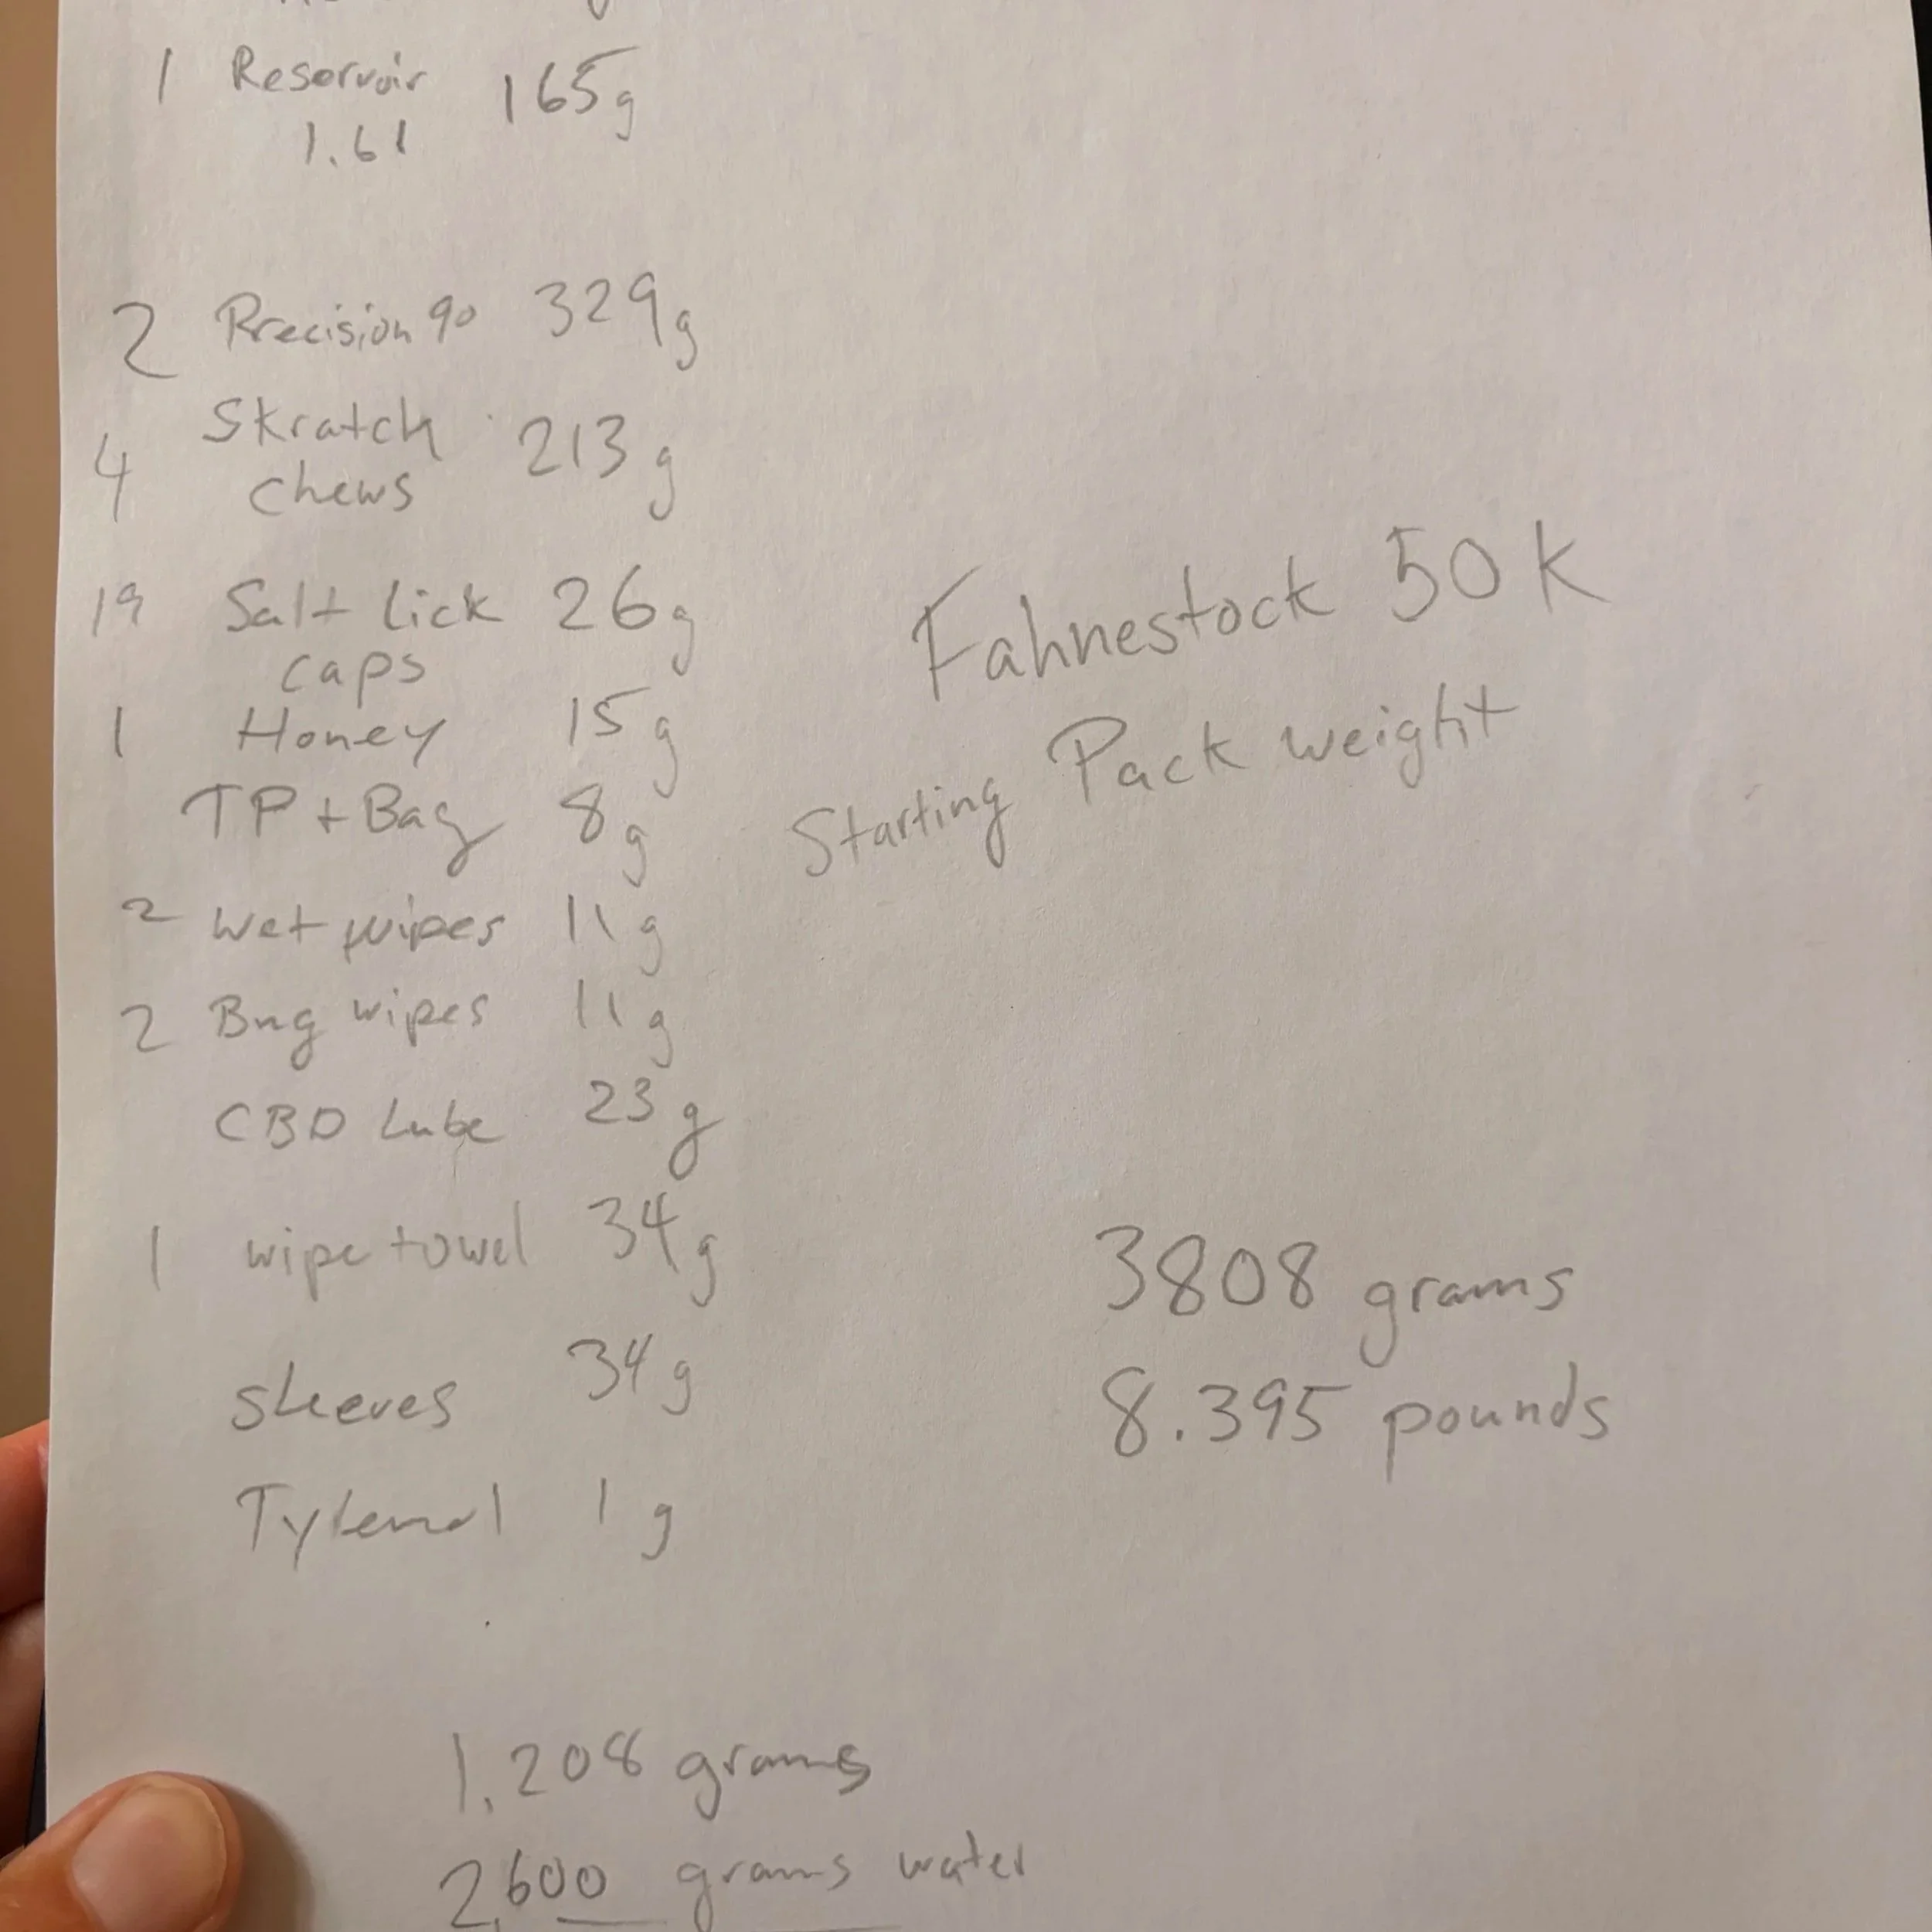 1 Reservoir 165g
1.6l
2 Precision 90 329g
4 Skratch chews 213g
19 Salt Lick caps 26g
1 Honey 15g
TP + Bag 8g
2 wet wipes 11g
2 Bug wipes 11g
CBD Lube 23g
1 wipe towel 34g
sleeves 34g
Tylenol 1g
Fahnestock 50K
Starting Pack weight
3808 grams
8.395 pounds
1,208 grams
2,600 grams water